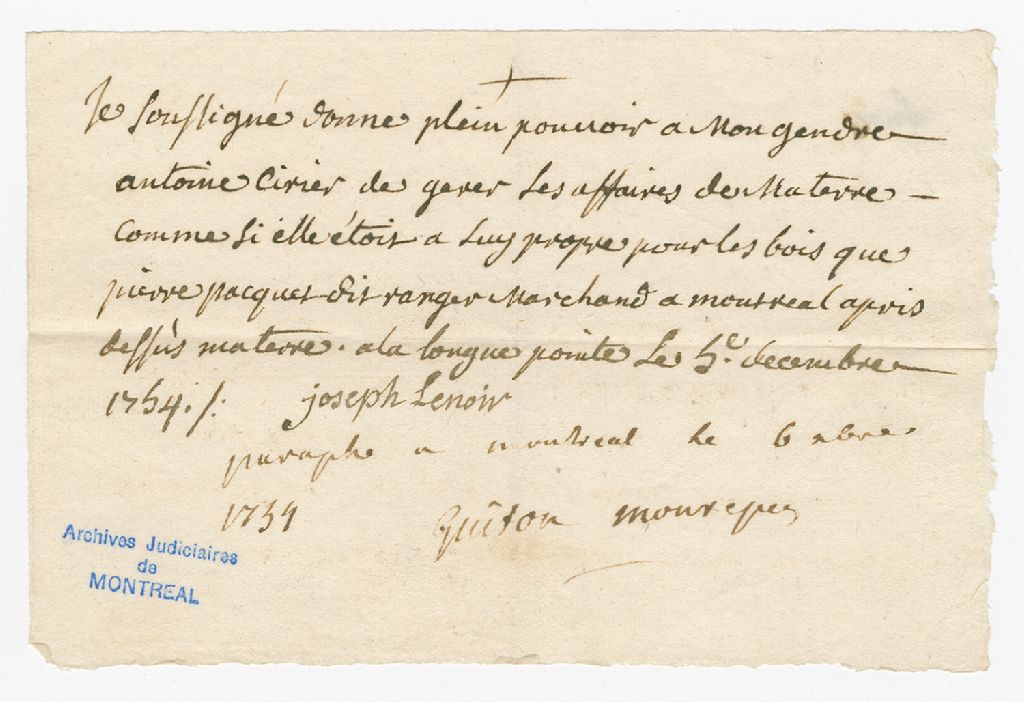 Je Soussigné donne plein pouvoir a Mon gendre
antoine Cirier de gerer Les affaires de Ma terre
Comme Si elle étoit a Luy propre pour les bois que
pierre pacquet dit ranger Marchand a montreal a pris
dessus ma terre. a la longue pointe Le 5e. decembre
1754. /: joseph Lenoir
paraphe a montreal le 6 xbre
1754
Guiton monrepos
Archives Judiciaires
de
MONTREAL